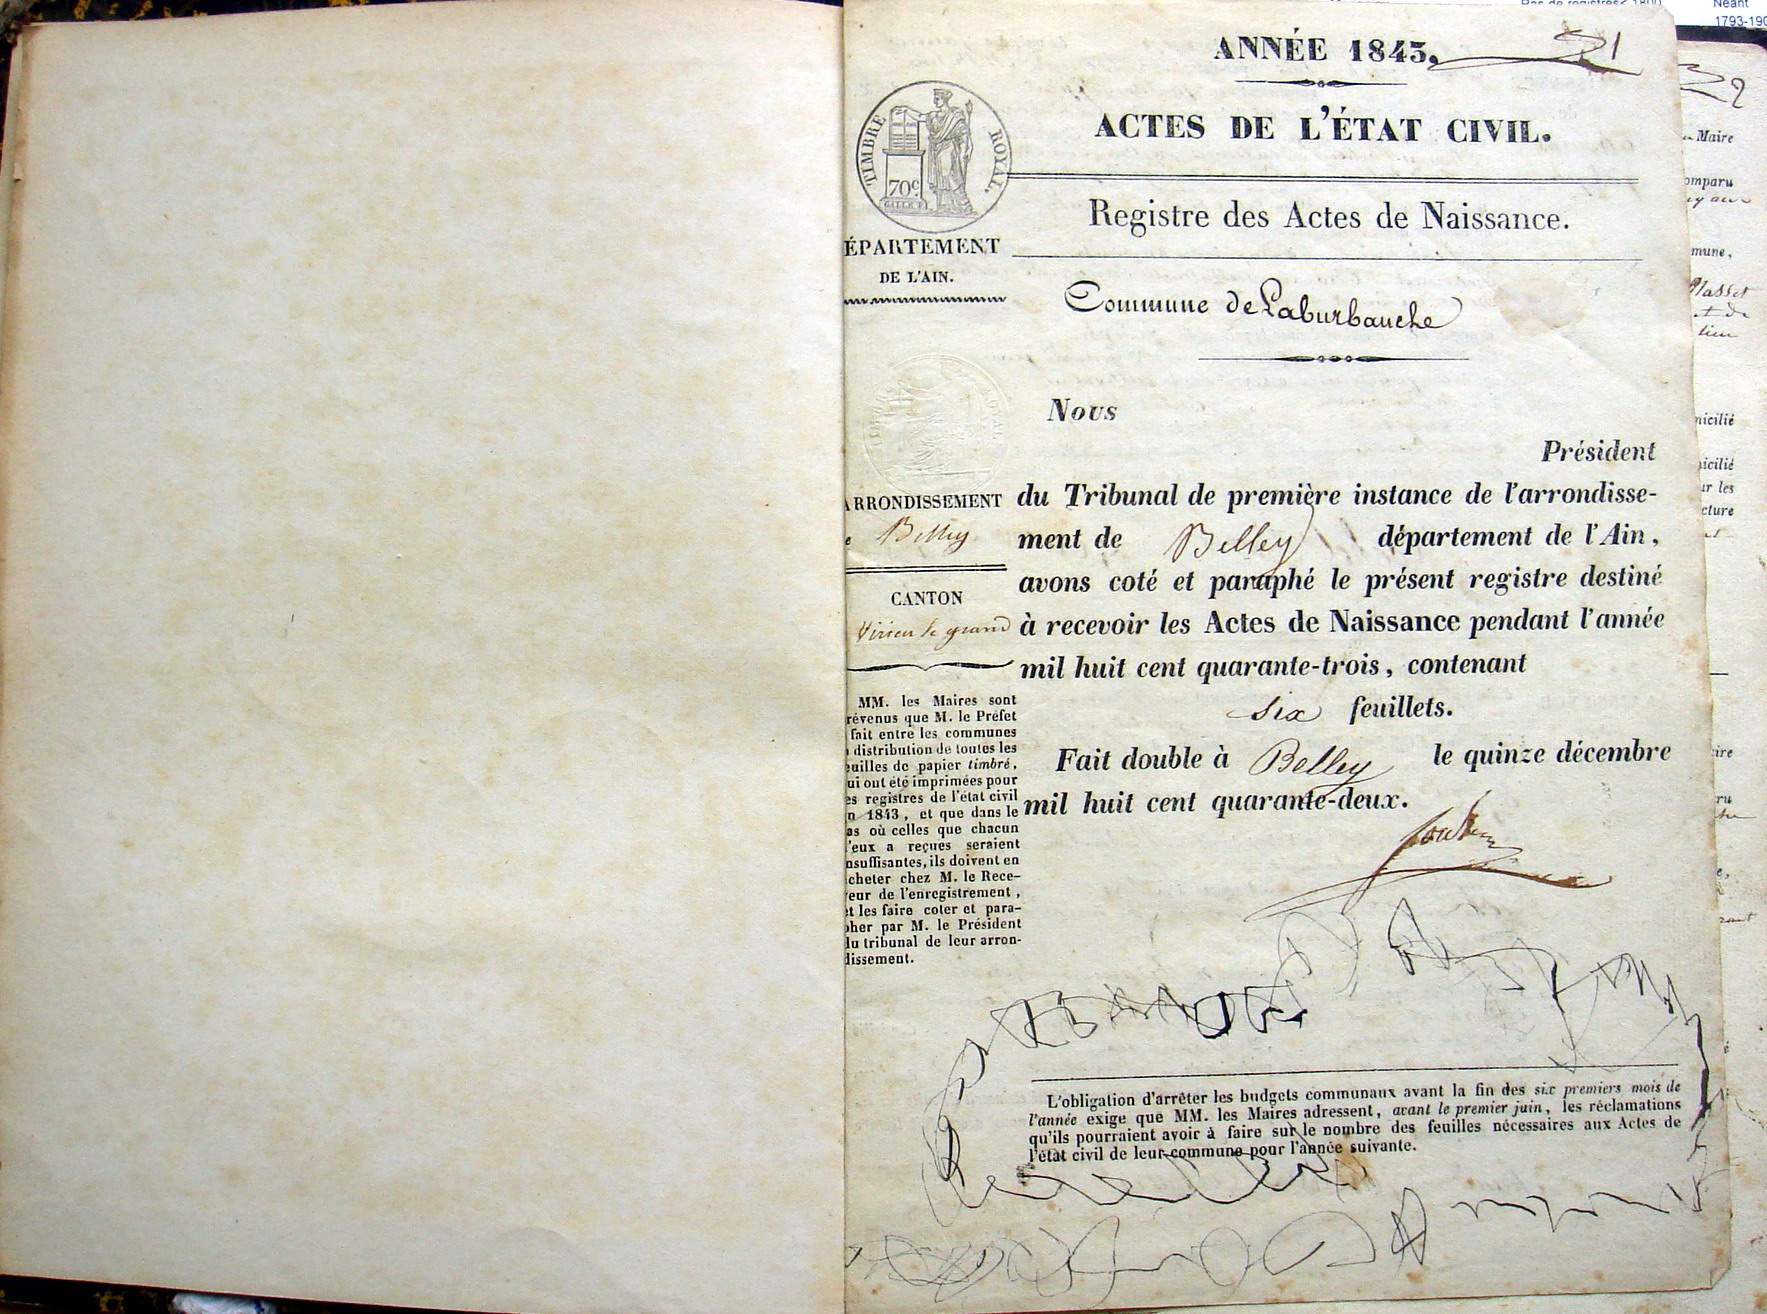 Pas de registres< 1800
Néant
1793-190
ANNÉE 1843.
1
ACTES DE L'ÉTAT CIVIL.
TIMBRE ROYAL.
70c
Registre des Actes de Naissance.
ÉPARTEMENT
DE L'AIN.
Commune de Laburbanche
Nous
Président
du Tribunal de première instance de l'arrondisse-
ment de Belley département de l'Ain,
avons coté et paraphé le présent registre destiné
à recevoir les Actes de Naissance pendant l'année
mil huit cent quarante-trois, contenant
six feuillets.
Fait double à Belley le quinze décembre
mil huit cent quarante-deux.
ARRONDISSEMENT
e Belley
CANTON
Virieu le grand
MM. les Maires sont
révenus que M. le Préfet
fait entre les communes
a distribution de toutes les
euilles de papier timbré,
ui ont été imprimées pour
es registres de l'état civil
n 1843, et que dans le
as où celles que chacun
'eux a reçues seraient
nsuffisantes, ils doivent en
cheter chez M. le Rece-
eur de l'enregistrement,
et les faire coter et para-
pher par M. le Président
du tribunal de leur arron-
dissement.
L'obligation d'arrêter les budgets communaux avant la fin des six premiers mois de
l'année exige que MM. les Maires adressent, avant le premier juin, les réclamations
qu'ils pourraient avoir à faire sur le nombre des feuilles nécessaires aux Actes de
l'état civil de leur commune pour l'année suivante.
2
Maire
omparu
mune,
nicilié
nicilié
ur les
cture
ire
ru